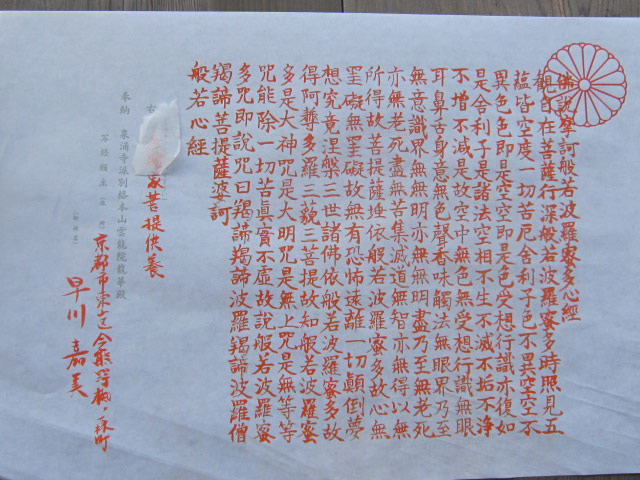 佛説摩訶般若波羅蜜多心経
観自在菩薩行深般若波羅蜜多時照見五
蘊皆空度一切苦厄舎利子色不異空空不
異色色即是空空即是色受想行識亦復如
是舎利子是諸法空相不生不滅不垢不浄
不増不減是故空中無色無受想行識無眼
耳鼻舌身意無色聲香味觸法無眼界乃至
無意識界無無明亦無無明盡乃至無老死
亦無老死盡無苦集滅道無智亦無得以無
所得故菩提薩埵依般若波羅蜜多故心無
罣礙無罣礙故無有恐怖遠離一切顛倒夢
想究竟涅槃三世諸佛依般若波羅蜜多故
得阿耨多羅三藐三菩提故知般若波羅蜜
多是大神咒是大明咒是無上咒是無等等
咒能除一切苦真實不虚故説般若波羅蜜
多咒即説咒曰羯諦羯諦波羅羯諦波羅僧
羯諦菩提薩婆訶
般若心經
右
菩提供養
奉納 泉涌寺派別格本山雲龍院龍華殿
京都市東山区今熊野
早川 嘉美